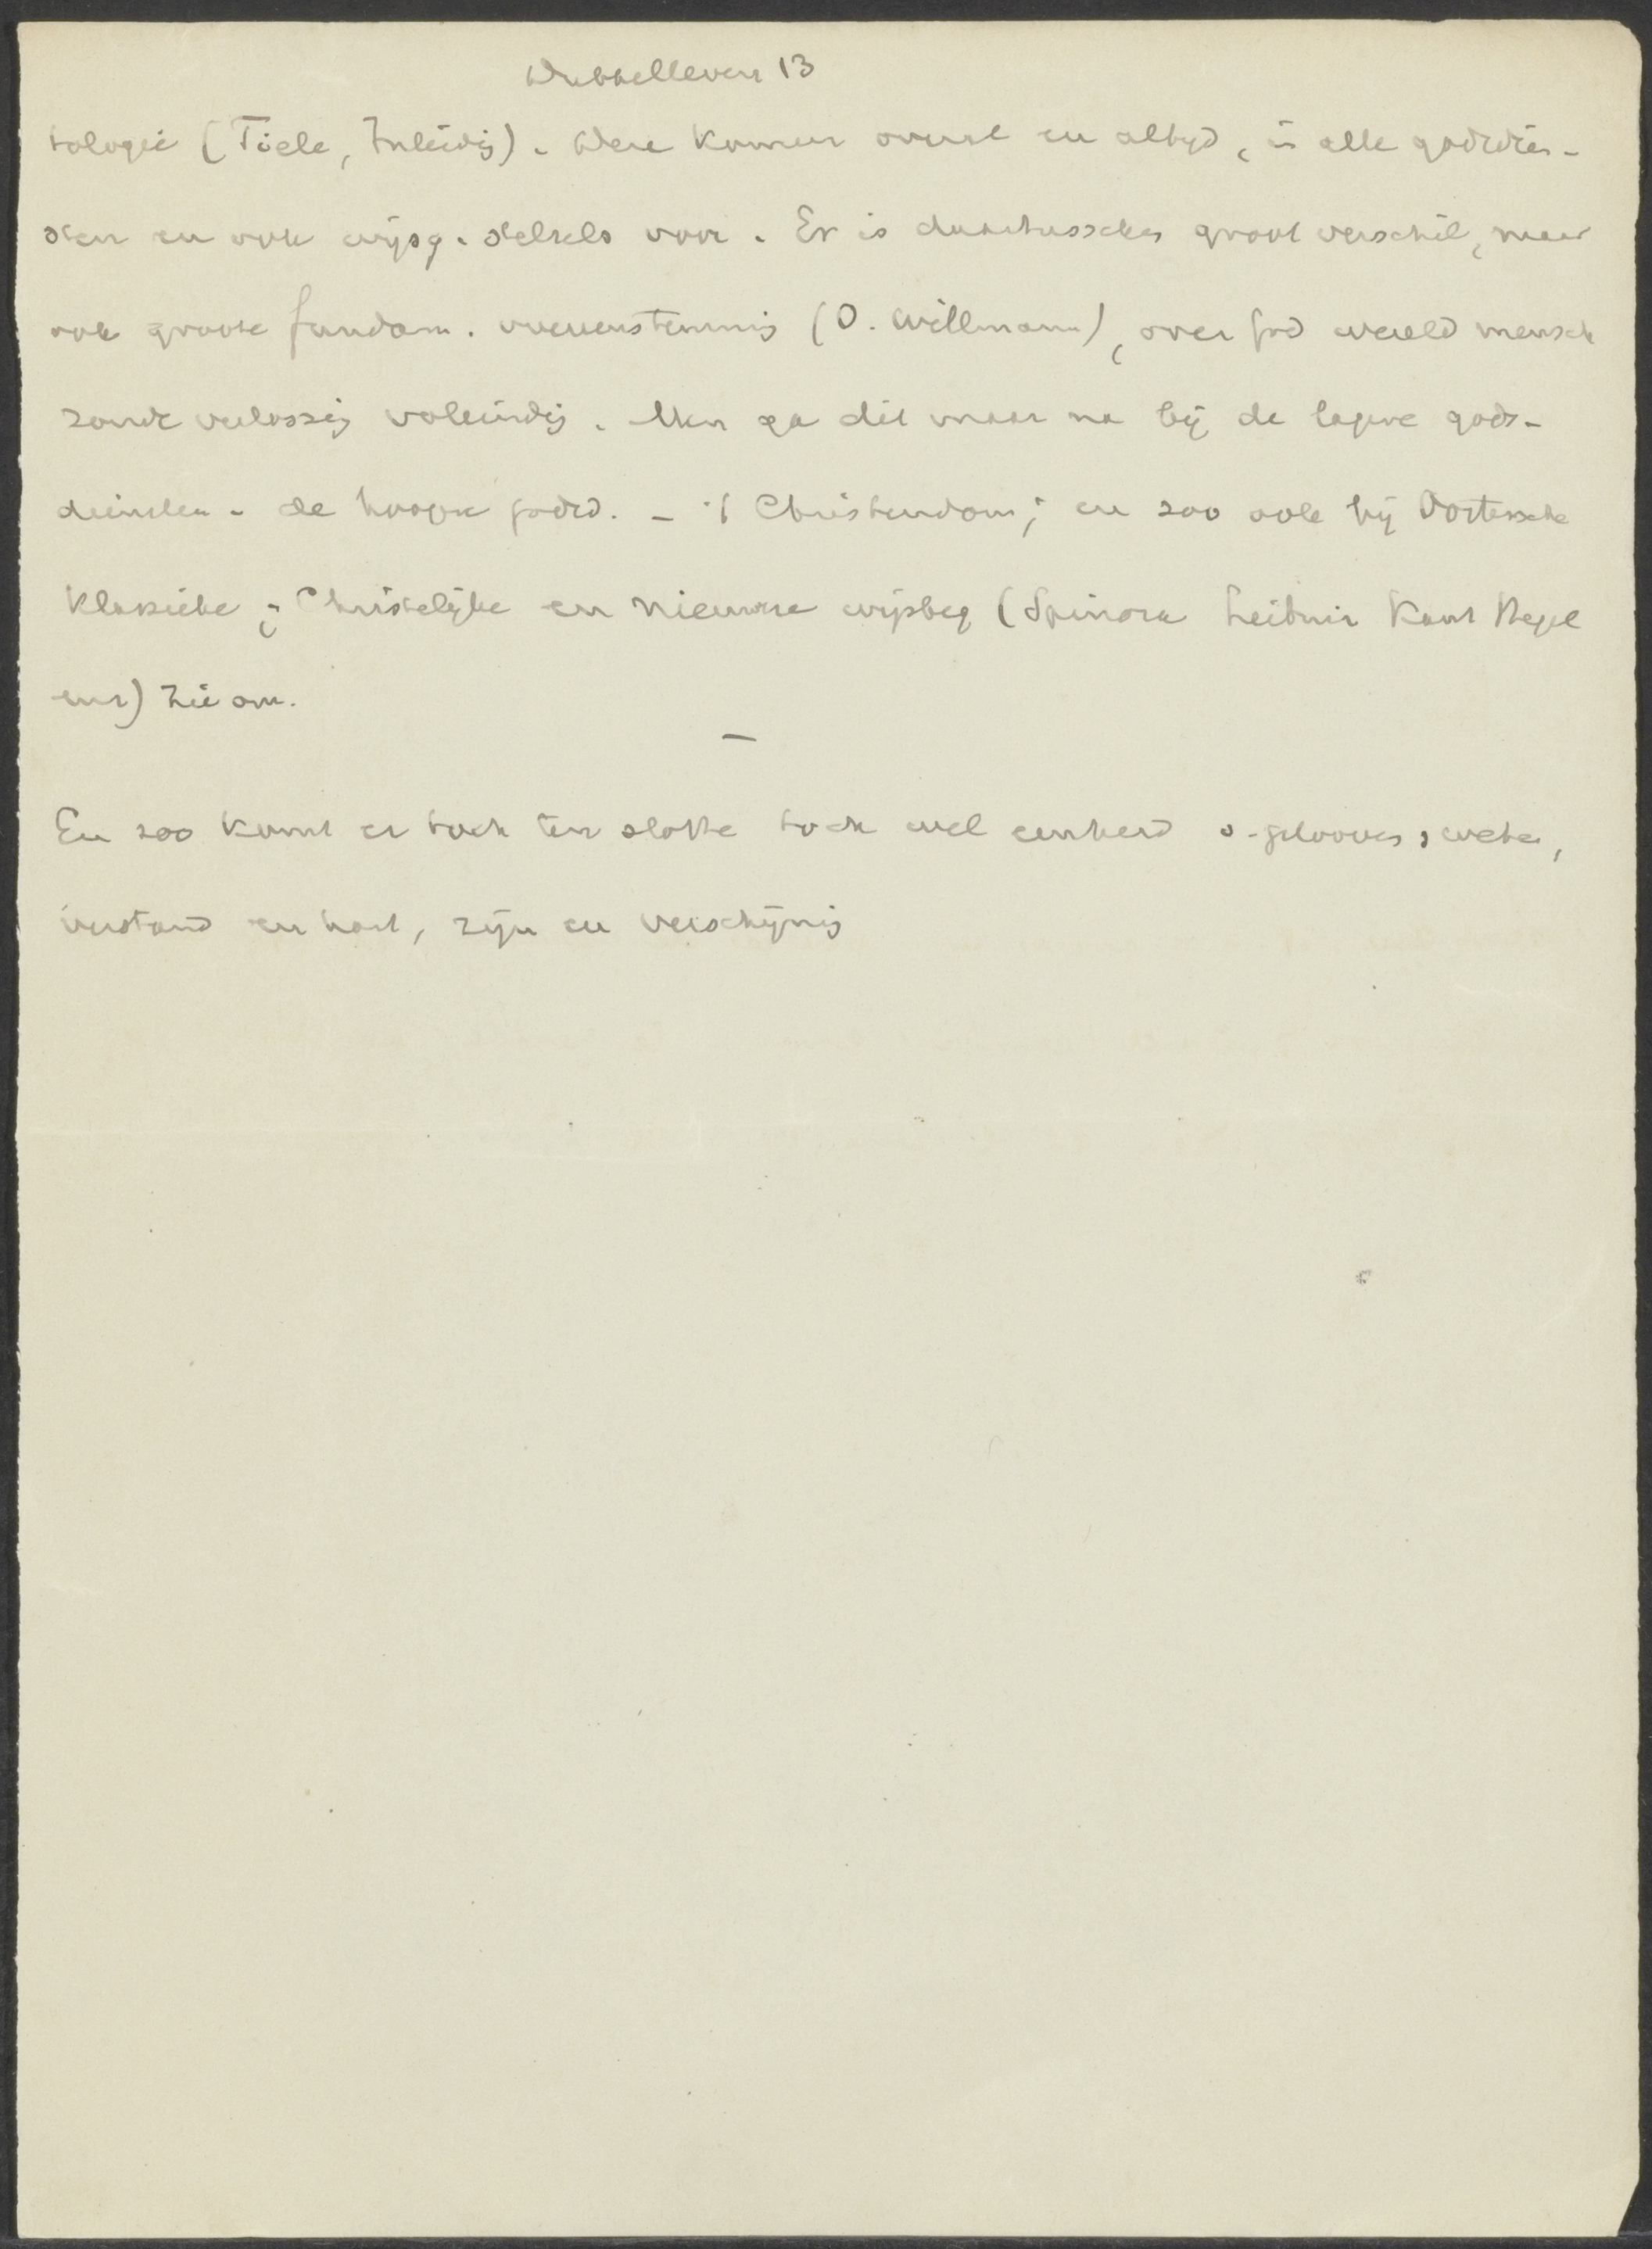 Dubbelleven 13
tologie (Tiele, Inleidg). Deze komen overal en altyd, in alle godsdien-
sten en ook wijsg. stelsels voor. Er is daartusschen groot verschil, maar
ook groote fundam. overeenstemmig (O. Willmann), over God wereld mensch
zonde verlossig voleindig. Men ga dit maar na bij de lagere gods-
diensten - de hoogere godsd. - 't Christendom; en zoo ook bij Oostersche
Klassieke; Christelijke en nieuwere wijsbeg (Spinoza Leibniz Kant Hegel
enz) zie om.
—
En zoo komt er toch ten slotte toch wel eenheid v. gelooven, weten,
verstand en hart, zijn en verschijnig